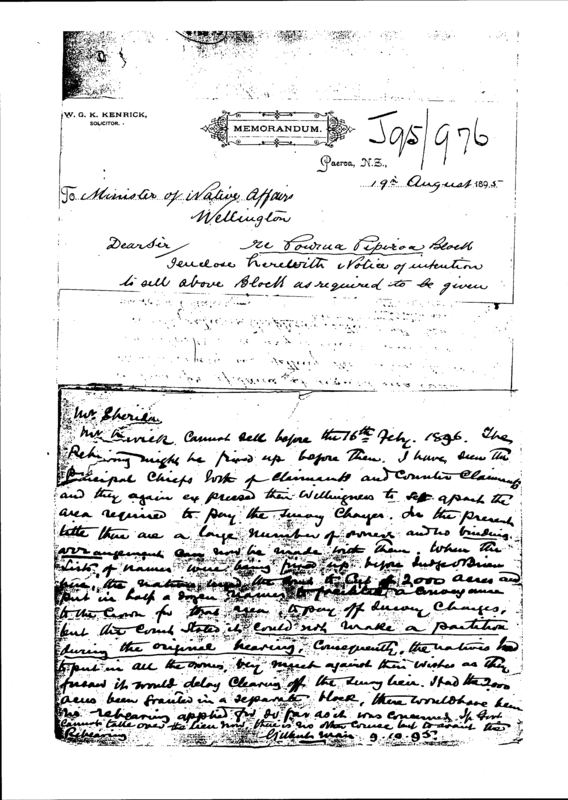 W. G. K. KENRICK,
SOLICITOR.
MEMORANDUM.
J95/976
Paeroa, N.Z.,
19th August 1895
To Minister of Native Affairs
Wellington
Dear Sir re Powrua Pipiroa Block
I enclose herewith Notice of intention
to sell above Block as required to be given
Mr Sheridan
Mr Kenrick cannot sell before the 16th Feby. 1896. The
Rehearing might be fixed up before then. I have seen the
Principal Chiefs both of Claimants and Counter Claimants
and they again expressed their willingness to set apart the
area required to pay the Survey Charges. In the present
title there are a large number of owners and no binding
arrangement can now be made with them. When the
lists of names were being fixed up before Judge O'Brien
the natives the Court to cut off 2000 acres and
put in half a dozen names to facilitate a conveyance
to the Crown for that area, to pay off Survey Charges,
but the Court stated it could not make a partition
during the original hearing, Consequently, the natives had
to put in all the owners very much against their wishes as they
foresaw it would delay clearing off the survey lien. Had the 2000
acres been granted in a separate block, there would have been
no rehearing applied for so far as it was concerned. If Govt
cannot take over the lien now, there is no other course but to await the
Rehearing
Gilbert Mair 9.10.95.